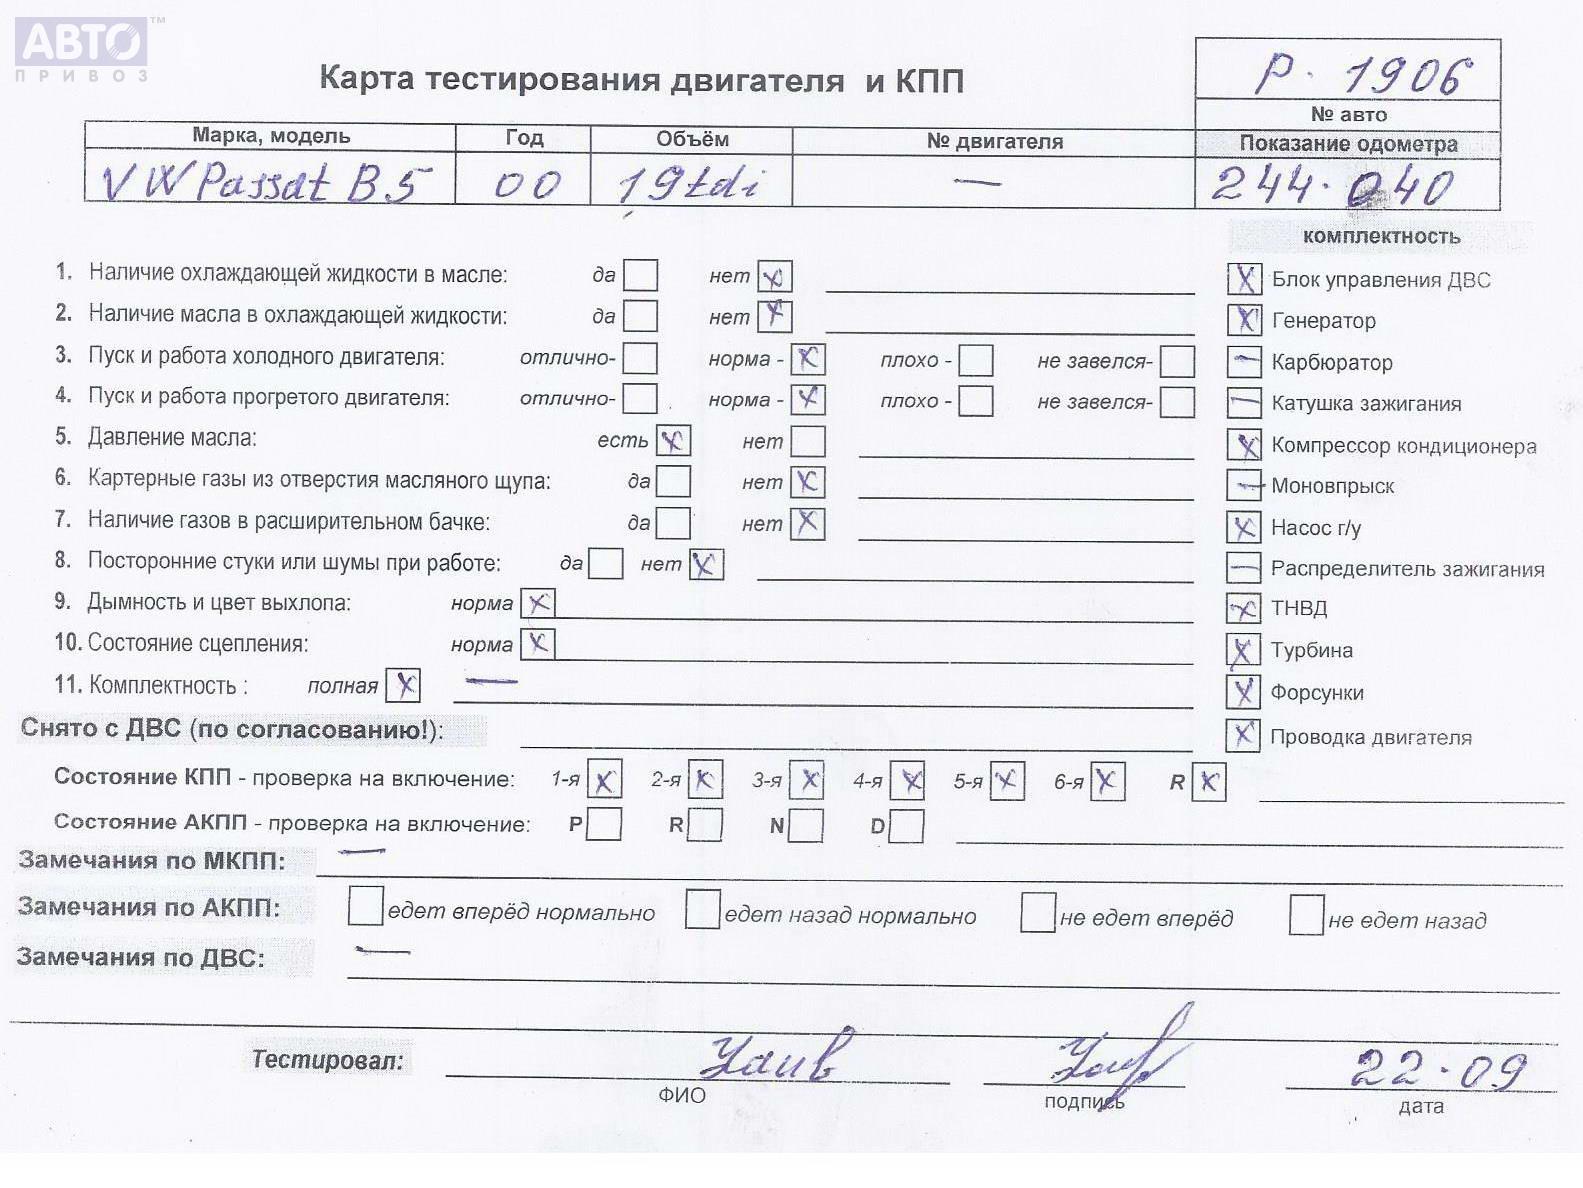 АВТО ™
ПРИВОЗ
Карта тестирования двигателя и КПП
Р. 1906
№ авто
Марка, модель Год Объём № двигателя Показание одометра
VW Passat B5 00 1,9tdi — 244.040
комплектность
1. Наличие охлаждающей жидкости в масле: да нет x
Блок управления ДВС
2. Наличие масла в охлаждающей жидкости: да нет x
Генератор
3. Пуск и работа холодного двигателя: отлично- норма - x плохо - не завелся-
Карбюратор
4. Пуск и работа прогретого двигателя: отлично- норма - x плохо - не завелся-
Катушка зажигания
5. Давление масла: есть x нет
Компрессор кондиционера
6. Картерные газы из отверстия масляного щупа: да нет x
Моновпрыск
7. Наличие газов в расширительном бачке: да нет x
Насос г/у
8. Посторонние стуки или шумы при работе: да нет x
Распределитель зажигания
9. Дымность и цвет выхлопа: норма x
ТНВД
10. Состояние сцепления: норма x
Турбина
11. Комплектность : полная x —
Форсунки
Снято с ДВС (по согласованию!):
Проводка двигателя
Состояние КПП - проверка на включение: 1-я x 2-я x 3-я x 4-я x 5-я x 6-я x R x
Состояние АКПП - проверка на включение: P R N D
Замечания по МКПП: —
Замечания по АКПП: едет вперёд нормально едет назад нормально не едет вперёд не едет назад
Замечания по ДВС: —
Тестировал: 22.09
ФИО подпись дата